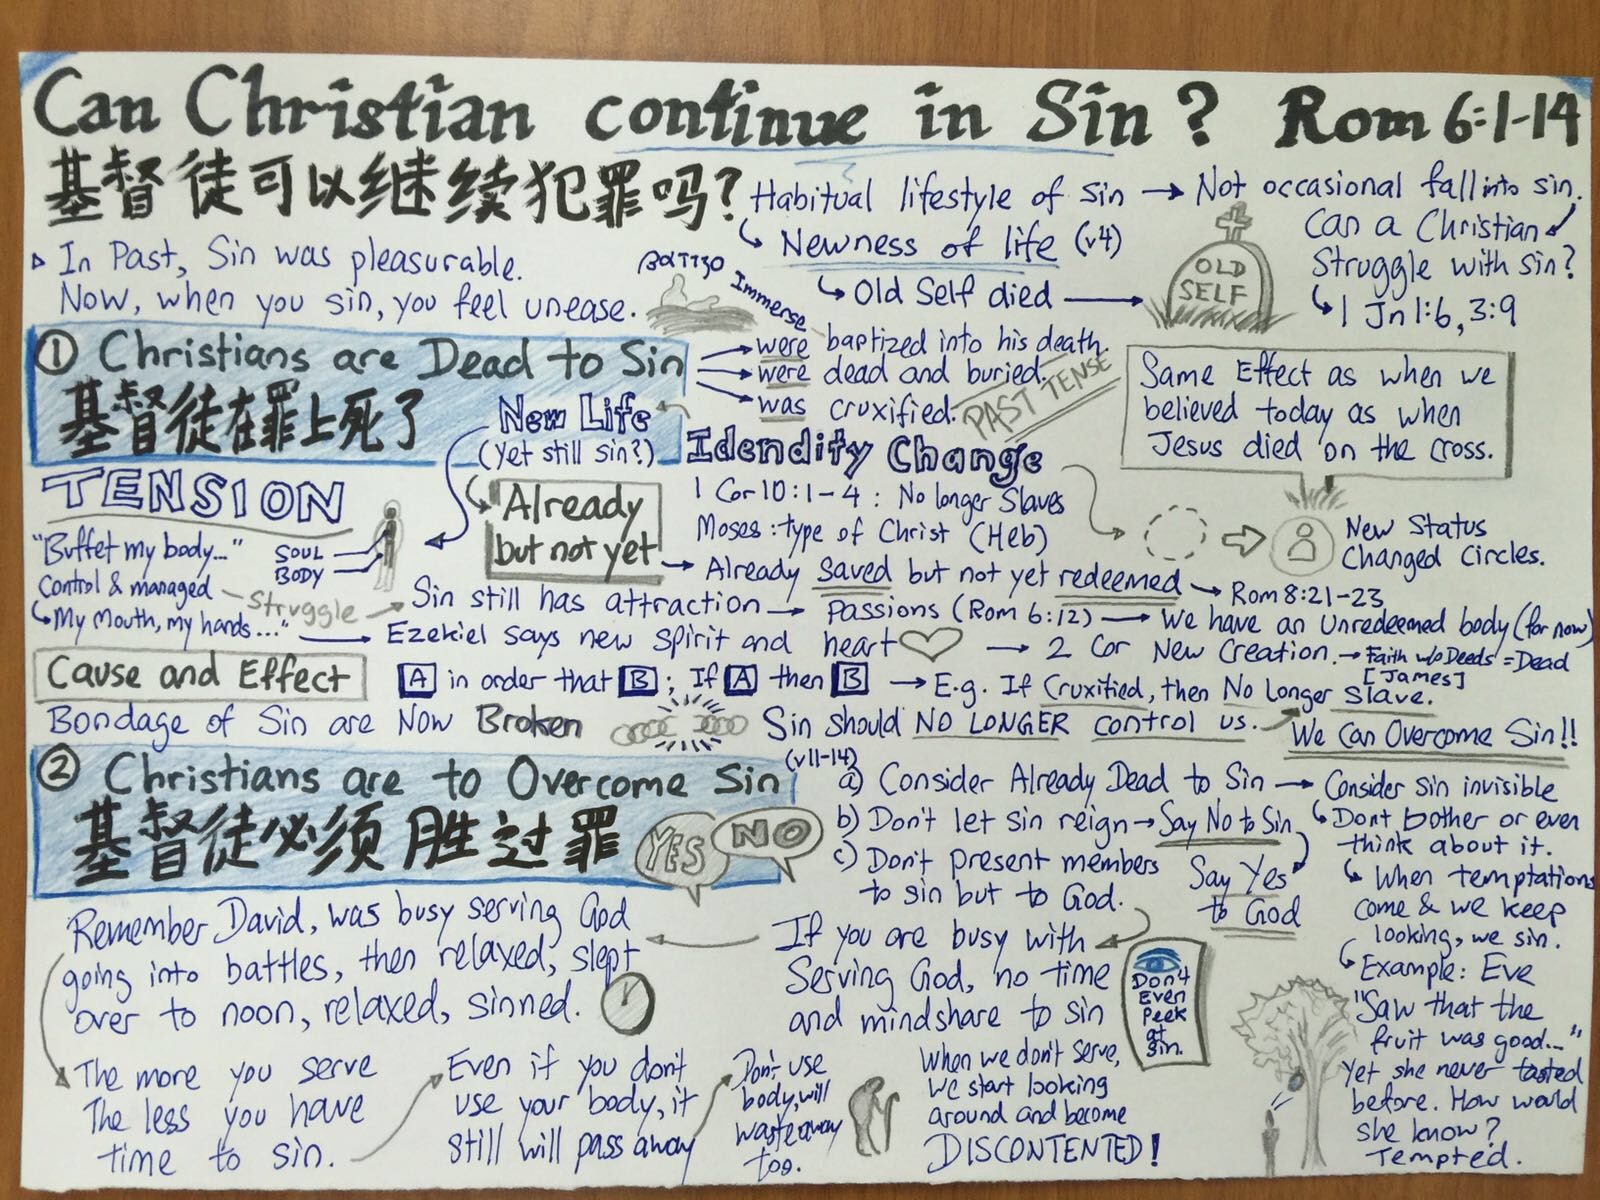 Can Christian continue in Sin? Rom 6:1-14
基督徒可以继续犯罪吗?
Habitual lifestyle of sin → Not occasional fall into sin.
Newness of life (v4)
Old Self died →
OLD
SELF
Can a Christian
struggle with sin?
1 Jn 1:6, 3:9
In Past, Sin was pleasurable.
Now, when you sin, you feel unease.
Immerse
① Christians are Dead to Sin
基督徒在罪上死了
were baptized into his death.
were dead and buried.
was cruxified.
PAST TENSE
Same Effect as when we
believed today as when
Jesus died on the cross.
New Life
(Yet still sin?)
Idendity Change
1 Cor 10:1-4: No longer Slaves
Moses: type of Christ (Heb)
New Status
Changed Circles.
TENSION
"Buffet my body..."
Control & managed
My Mouth, my hands...."
SOUL
BODY
Struggle
Already
but not yet
→ Already saved but not yet redeemed → Rom 8:21-23
Sin still has attraction → Passions (Rom 6:12) → We have an Unredeemed body (for now)
Ezekiel says new spirit and heart → 2 Cor New Creation. → Faith w/o Deeds = Dead
[James]
Cause and Effect
A in order that B; If A then B → E.g. If Cruxified, then No Longer Slave.
Bondage of Sin are Now Broken
Sin should NO LONGER control us.
We Can Overcome Sin!!
② Christians are to Overcome Sin
基督徒必须胜过罪
YES
NO
(v11-14)
a) Consider Already Dead to Sin → Consider Sin invisible
b) Don't let sin reign → Say No to Sin
c) Don't present members
to sin but to God.
Say Yes
to God
Dont bother or even
think about it.
When temptations
come & we keep
looking, we sin.
Example: Eve
"Saw that the
fruit was good..."
Yet she never tasted
before. How would
she know?
Tempted.
If you are busy with
Serving God, no time
and mindshare to sin
Don't
Even
Peek
at
Sin.
Remember David, was busy serving God
going into battles, then relaxed, slept
over to noon, relaxed, sinned.
The more you serve
The less you have
time to sin.
Even if you don't
use your body, it
still will pass away
Don't use
body, will
waste away
too.
When we don't serve,
we start looking
around and become
DISCONTENTED!